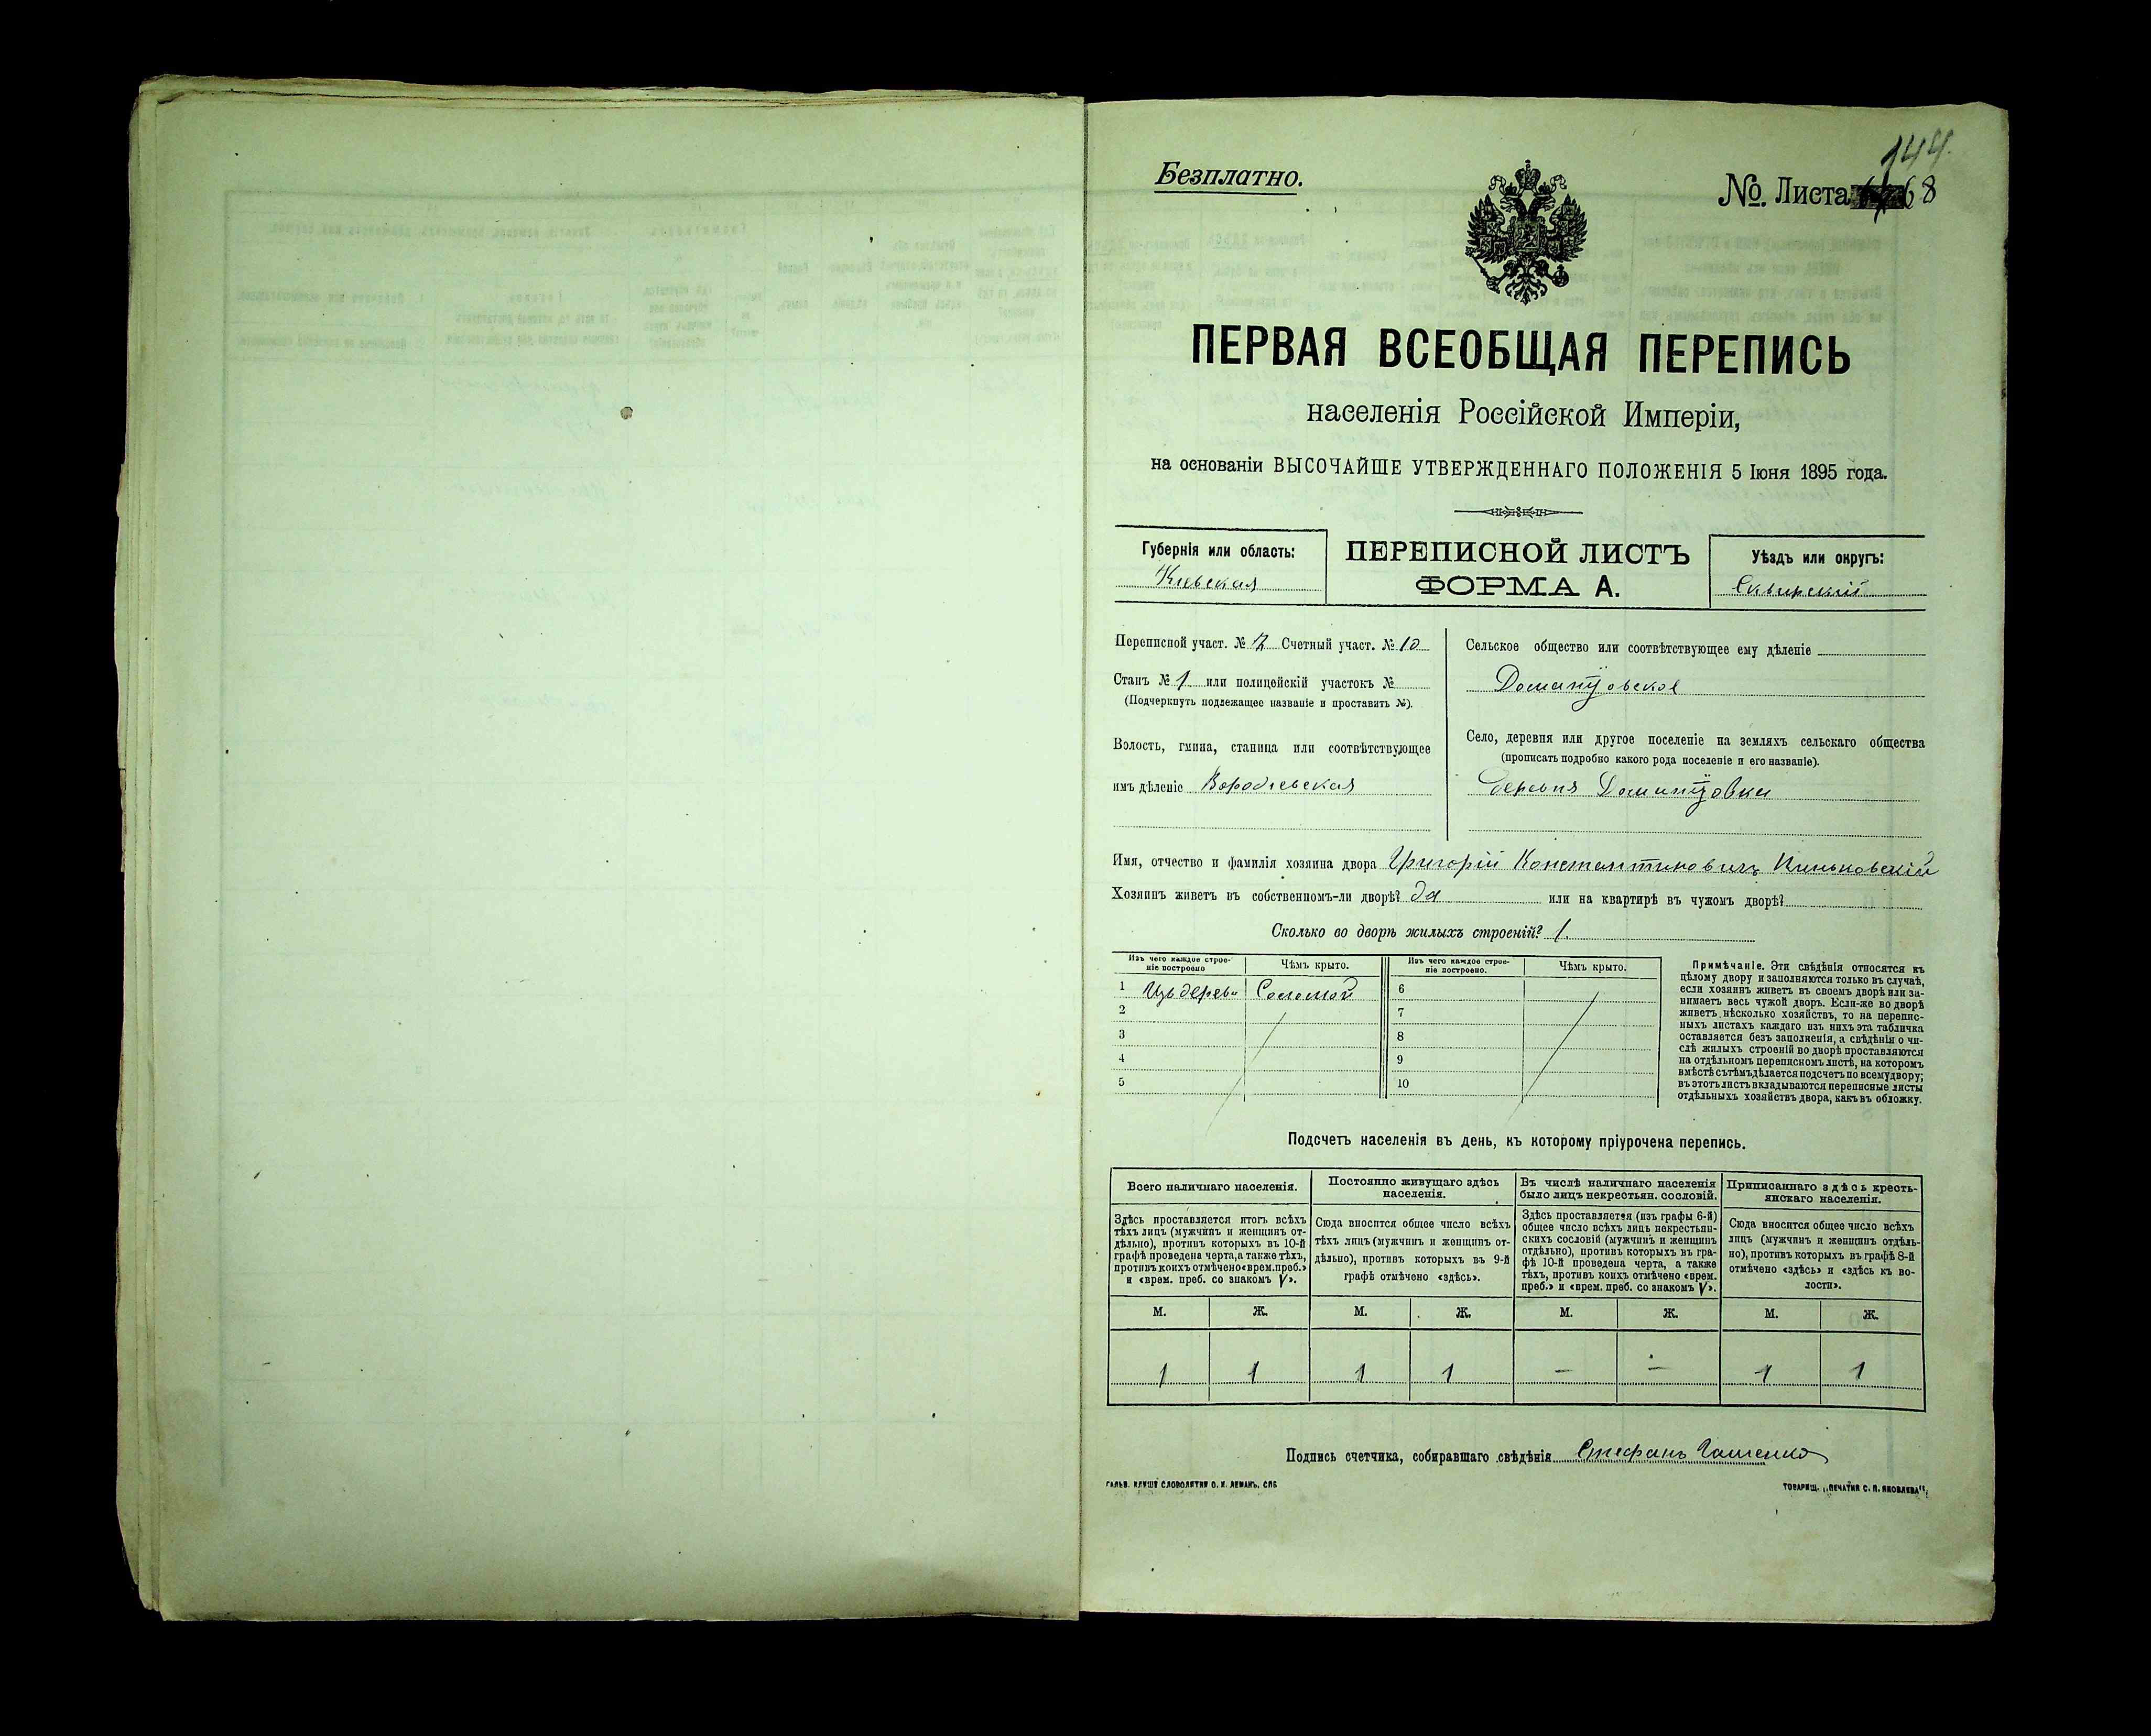 144.
Безплатно.
№ Листа 68
ПЕРВАЯ ВСЕОБЩАЯ ПЕРЕПИСЬ
населенія Россійской Имперіи,
на основаніи ВЫСОЧАЙШЕ УТВЕРЖДЕННАГО ПОЛОЖЕНІЯ 5 Іюня 1895 года.
Губернія или область:
Кіевская
ПЕРЕПИСНОЙ ЛИСТЪ
ФОРМА А.
Уѣздъ или округъ:
Сквирскій
Переписной участ. № 2 Счетный участ. № 10
Станъ № 1 или полицейскій участокъ №
(Подчеркнуть подлежащее названіе и проставить №).
Волость, гмина, станица или соотвѣтствующее
имъ дѣленіе
Сельское общество или соотвѣтствующее ему дѣленіе
Село, деревня или другое поселеніе на земляхъ сельскаго общества
(прописать подробно какого рода поселеніе и его названіе).
Деревня
Имя, отчество и фамилія хозяина двора Григорій Константиновичъ
Хозяинъ живетъ въ собственномъ-ли дворѣ? да или на квартирѣ въ чужомъ дворѣ?
Сколько во дворѣ жилыхъ строеній? 1
Изъ чего каждое строе-
ніе построено
Чѣмъ крыто.
Изъ чего каждое строе-
ніе построено.
Чѣмъ крыто.
1 Изъ дерева Соломой
2
3
4
5
6
7
8
9
10
Примѣчаніе. Эти свѣдѣнія относятся къ
цѣлому двору и заполняются только въ случаѣ,
если хозяинъ живетъ въ своемъ дворѣ или за-
нимаетъ весь чужой дворъ. Если-же во дворѣ
живетъ нѣсколько хозяйствъ, то на перепис-
ныхъ листахъ каждаго изъ нихъ эта табличка
оставляется безъ заполненія, а свѣдѣнія о чи-
слѣ жилыхъ строеній во дворѣ проставляются
на отдѣльномъ переписномъ листѣ, на которомъ
вмѣстѣ съ тѣмъ дѣлается подсчетъ по всему двору;
въ этотъ листъ вкладываются переписные листы
отдѣльныхъ хозяйствъ двора, какъ въ обложку.
Подсчетъ населенія въ день, къ которому пріурочена перепись.
Всего наличнаго населенія.
Здѣсь проставляется итогъ всѣхъ
тѣхъ лицъ (мужчинъ и женщинъ от-
дѣльно), противъ которыхъ въ 10-й
графѣ проведена черта, а также тѣхъ,
противъ коихъ отмѣчено «врем. преб.»
и «врем. преб. со знакомъ V».
Постоянно живущаго здѣсь
населенія.
Сюда вносится общее число всѣхъ
тѣхъ лицъ (мужчинъ и женщинъ от-
дѣльно), противъ которыхъ въ 9-й
графѣ отмѣчено «здѣсь».
Въ числѣ наличнаго населенія
было лицъ некрестьян. сословій.
Здѣсь проставляется (изъ графы 6-й)
общее число всѣхъ лицъ некрестьян-
скихъ сословій (мужчинъ и женщинъ
отдѣльно), противъ которыхъ въ гра-
фѣ 10-й проведена черта, а также
тѣхъ, противъ коихъ отмѣчено «врем.
преб.» и «врем. преб. со знакомъ V».
Приписаннаго здѣсь кресть-
янскаго населенія.
Сюда вносится общее число всѣхъ
лицъ (мужчинъ и женщинъ отдѣль-
но), противъ которыхъ въ графѣ 8-й
отмѣчено «здѣсь» и «здѣсь къ во-
лости».
М. Ж. М. Ж. М. Ж. М. Ж.
1 1 1 1 — — 1 1
Подпись счетчика, собиравшаго свѣдѣнія Стефанъ
ГАЛЬВ. КЛИШЕ СЛОВОЛИТНИ О. И. ЛЕМАНЪ, СПБ
ТОВАРИЩ. „ПЕЧАТНЯ С. П. ЯКОВЛЕВА“